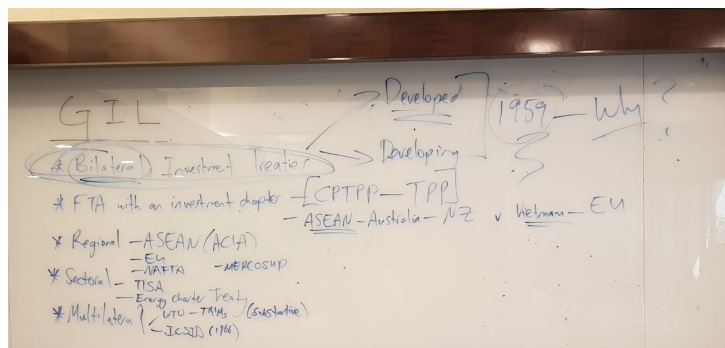 GIL
Developed
1959 - Why?
* Bilateral Investment Treaties
Developing
* FTA with an investment chapter - [CPTPP - TPP]
- ASEAN - Australia - NZ v Vietnam - EU
* Regional - ASEAN (ACIA)
- EU
- NAFTA - MERCOSUR
* Sectoral - TISA
- Energy Charter Treaty
* Multilateral WTO - TRIMs (substantive)
- ICSID (1966)